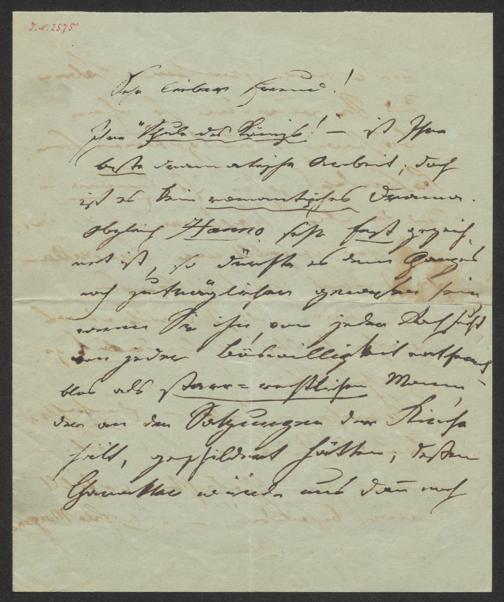 I.N. 2575
Sehr lieber Freund!
Ihre "Schule des Königs"! – ist Ihre
beste dramatische Arbeit, doch
ist es kein romantisches Drama.
Obgleich Hanno sehr fest gezeich-
net ist, so dürfte es dem Ganzen
noch zuträglicher gewesen sein
wenn Sie ihn, von jeder
von jeder Böswilligkeit entfernt
blos als starr= Mann,
der an den Satzungen der Kirche
hält, geschildert hätten; dessen
Charakter würde uns dann noch